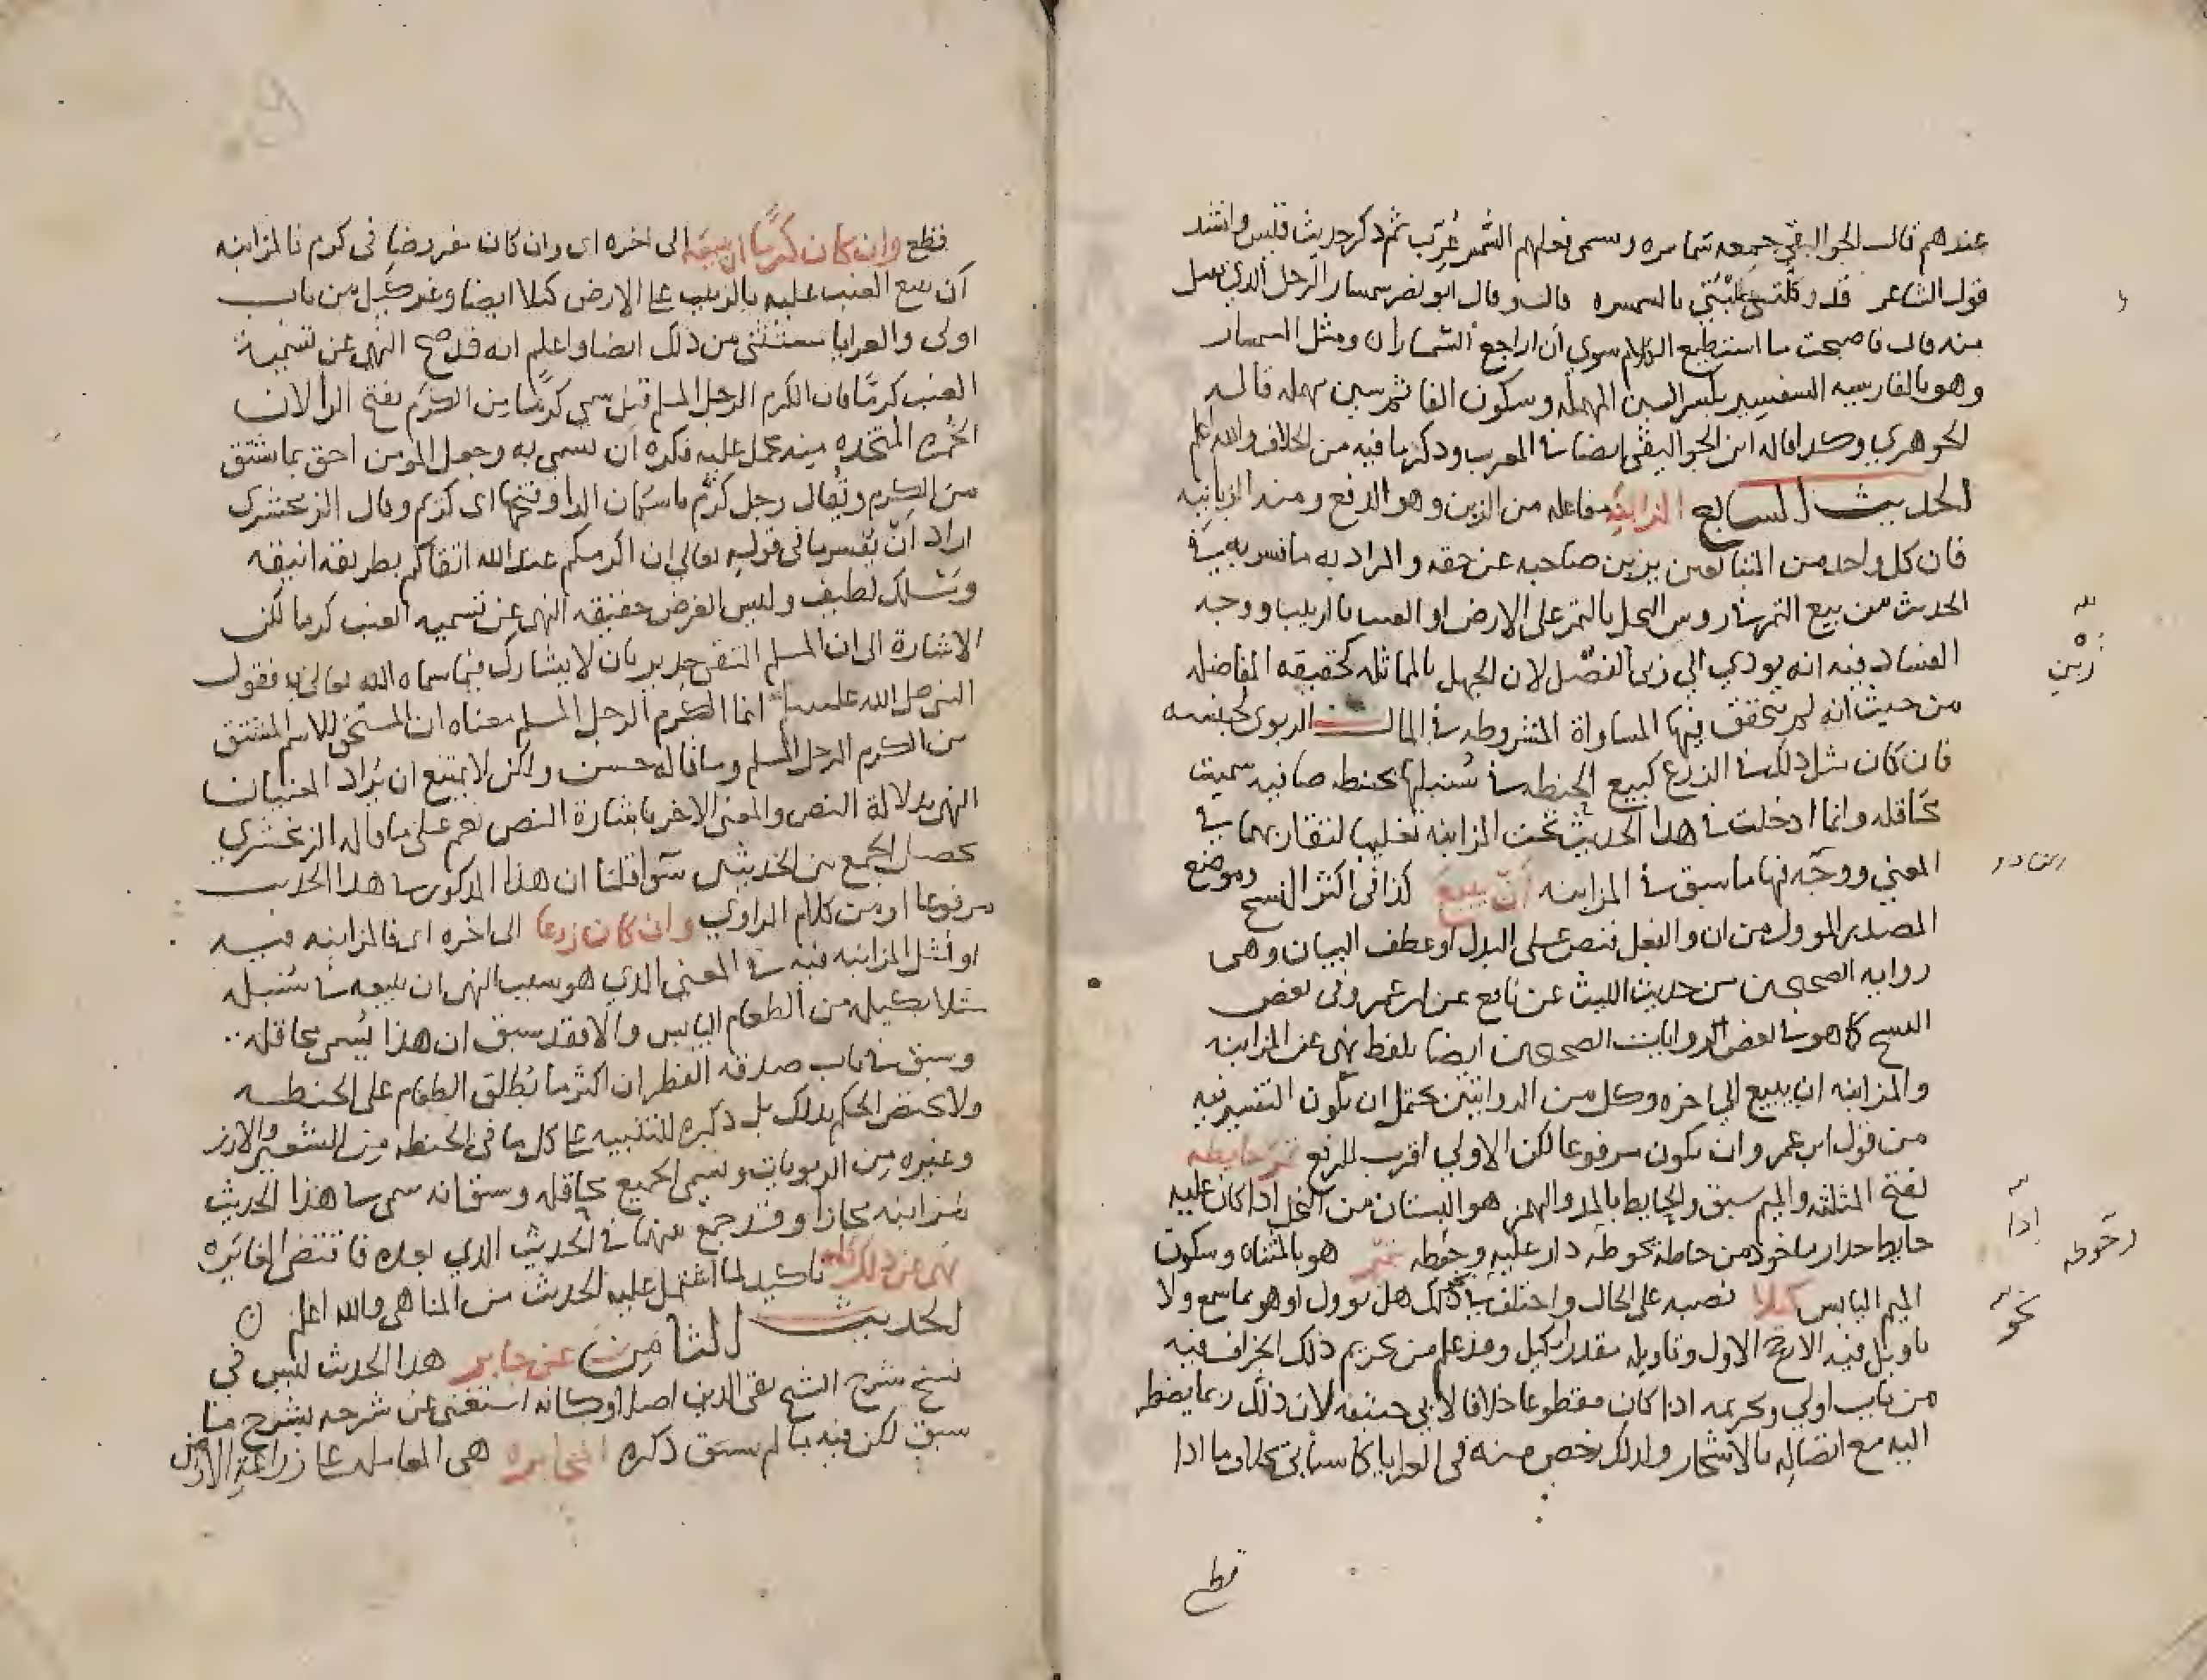 عندهم قال الجواليقي جمعه سماسره وسمى فعلهم السمسر عرب ثم ذكر حديث قيس وانشد
قول الشاعر قد وكلتني طلتي بالسمسره قال وقال ابو نصر سمسار الرجل الذي نسل
منه قال فاصبحت ما استطيع الكلام سوى ان اراجع السمسارا ومثل السمسار
وهو بالفارسيه السفسير بكسر السين المهمله وسكون الفا ثم سين مهمله قاله
الجوهري وكذا قاله ابن الجواليقي ايضا في المعرب وذكر ما فيه من الخلاف والله اعلم
الحديث السابع المزابنة مفاعله من الزبن وهو الدفع ومنه الزبانيه
فان كل واحد من المتبايعين يزبن صاحبه عن حقه والمراد به ما فسر به في
الحديث من بيع التمر في روس النخل بالتمر على الارض او العنب بالزبيب ووجه
الفساد فيه انه يودي الى ربا الفضل لان الجهل بالمماثله كحقيقه المفاضله
من حيث انه لم يتحقق فيها المساواة المشروطه في المال الربوي لجنسه
فان كان مثل ذلك في الزرع كبيع الحنطه في سنبلها بحنطه صافيه سميت
محاقله وانما ادخلت في هذا الحديث تحت المزابنه تغليبا لتقاربهما في
المعنى ووجه فيها ما سبق في المزابنه ان يبيع كذا في اكثر النسخ وموضع
المصدر الموول من ان والفعل نصب على البدل او عطف البيان وهي
روايه الصحيحين من حديث الليث عن نافع عن ابن عمر وفي بعض
النسخ كما هو في بعض الروايات الصحيحين ايضا بلفظ نهى عن المزابنه
والمزابنه ان يبيع الى اخره وكل من الروايتين يحتمل ان يكون التفسير فيه
من قول ابن عمر وان يكون مرفوعا لكن الاولى اقرب للرفع ثمر حايطه
بفتح المثلثه والميم سبق والحايط بالمد والهمز هو البستان من النخل اذا كان عليه
حايط جدار ماخوذ من حاطه يحوطه دار عليه وحوطه بتمر هو بالمثناه وسكون
الميم اليابس كيلا نصبه على الحال واختلف في ذلك هل يوول او هو مما سمع ولا
تاويل فيه الارجح الاول وتاويله مقدرا بكيل وقد علم من تحريم ذلك الجزاف فيه
من باب اولى وتحريمه اذا كان مقطوعا خلافا لابي حنيفه لان ذلك ربما يضطر
اليه مع اتصاله بالاشجار ولذلك رخص منه في العرايا كما سياتي بخلاف ما اذا
قطع
زبن
اذا
وحوطه
نحو
قطع وان كان كرما ان يبيعه الى اخره اي وان كان مفروضا في كرم فالمزابنه
ان يبيع العنب عليه بالزبيب على الارض كيلا ايضا وغير كيل من باب
اولى والعرايا مستثنى من ذلك ايضا واعلم انه قد صح النهي عن تسمية
العنب كرما فان الكرم الرجل المسلم قيل سمي كرما من الكرم بفتح الرا لان
الخمرة المتخذه منه تحمل عليه فكره ان يسمى به وجعل المومن احق بما اشتق
من الكرم ويقال رجل كرم باسكان الرا وفتحها اي كريم وقال الزمخشري
اراد ان يفسر ما في قوله تعالى ان اكرمكم عند الله اتقاكم بطريقه انيقه
ومسلك لطيف وليس الغرض حقيقه النهي عن تسميه العنب كرما لكن
الاشارة الى ان المسلم التقي جدير بان لا يشارك فيما سماه الله تعالى به فقول
النبي صلى الله عليه وسلم انما الكرم الرجل المسلم معناه ان المستحق للاسم المشتق
من الكرم الرجل المسلم وما قاله حسن ولكن لا يمتنع ان يراد المعنيان
النهي بدلالة النص والمعنى الاخر باشارة النص نعم على ما قاله الزمخشري
يحصل الجمع بين الحديثين سوا قلنا ان هذا المذكور في هذا الحديث
مرفوعا او من كلام الراوي وان كان زرعا الى اخره اي فالمزابنه فيه
او مثل المزابنه فيه في المعنى الذي هو سبب النهي ان يبيعه في سنبله
مثلا بكيل من الطعام اليابس والا فقد سبق ان هذا يسمى محاقله
وسبق في باب صدقه الفطر ان اكثر ما يطلق الطعام على الحنطه
ولا يختص الحكم بذلك بل ذكره للتنبيه على كل ما في الحنطه من الشعير والارز
وغيره من الربويات ويسمى الجميع محاقله وسبق انه سمى في هذا الحديث
مزابنه مجازا وقد جمع بينهما في الحديث الذي بعده فاقتضى المغايره
نهى عن ذلك كله تاكيد لما اشتمل عليه الحديث من المناهي والله اعلم
الحديث الثامن عن جابر هذا الحديث ليس في
نسخ شرح الشيخ تقي الدين اصلا وكانه استغنى عن شرحه بشرح ما
سبق لكن فيه ما لم يسبق ذكره المخابره هي المعامله على زراعة الارض